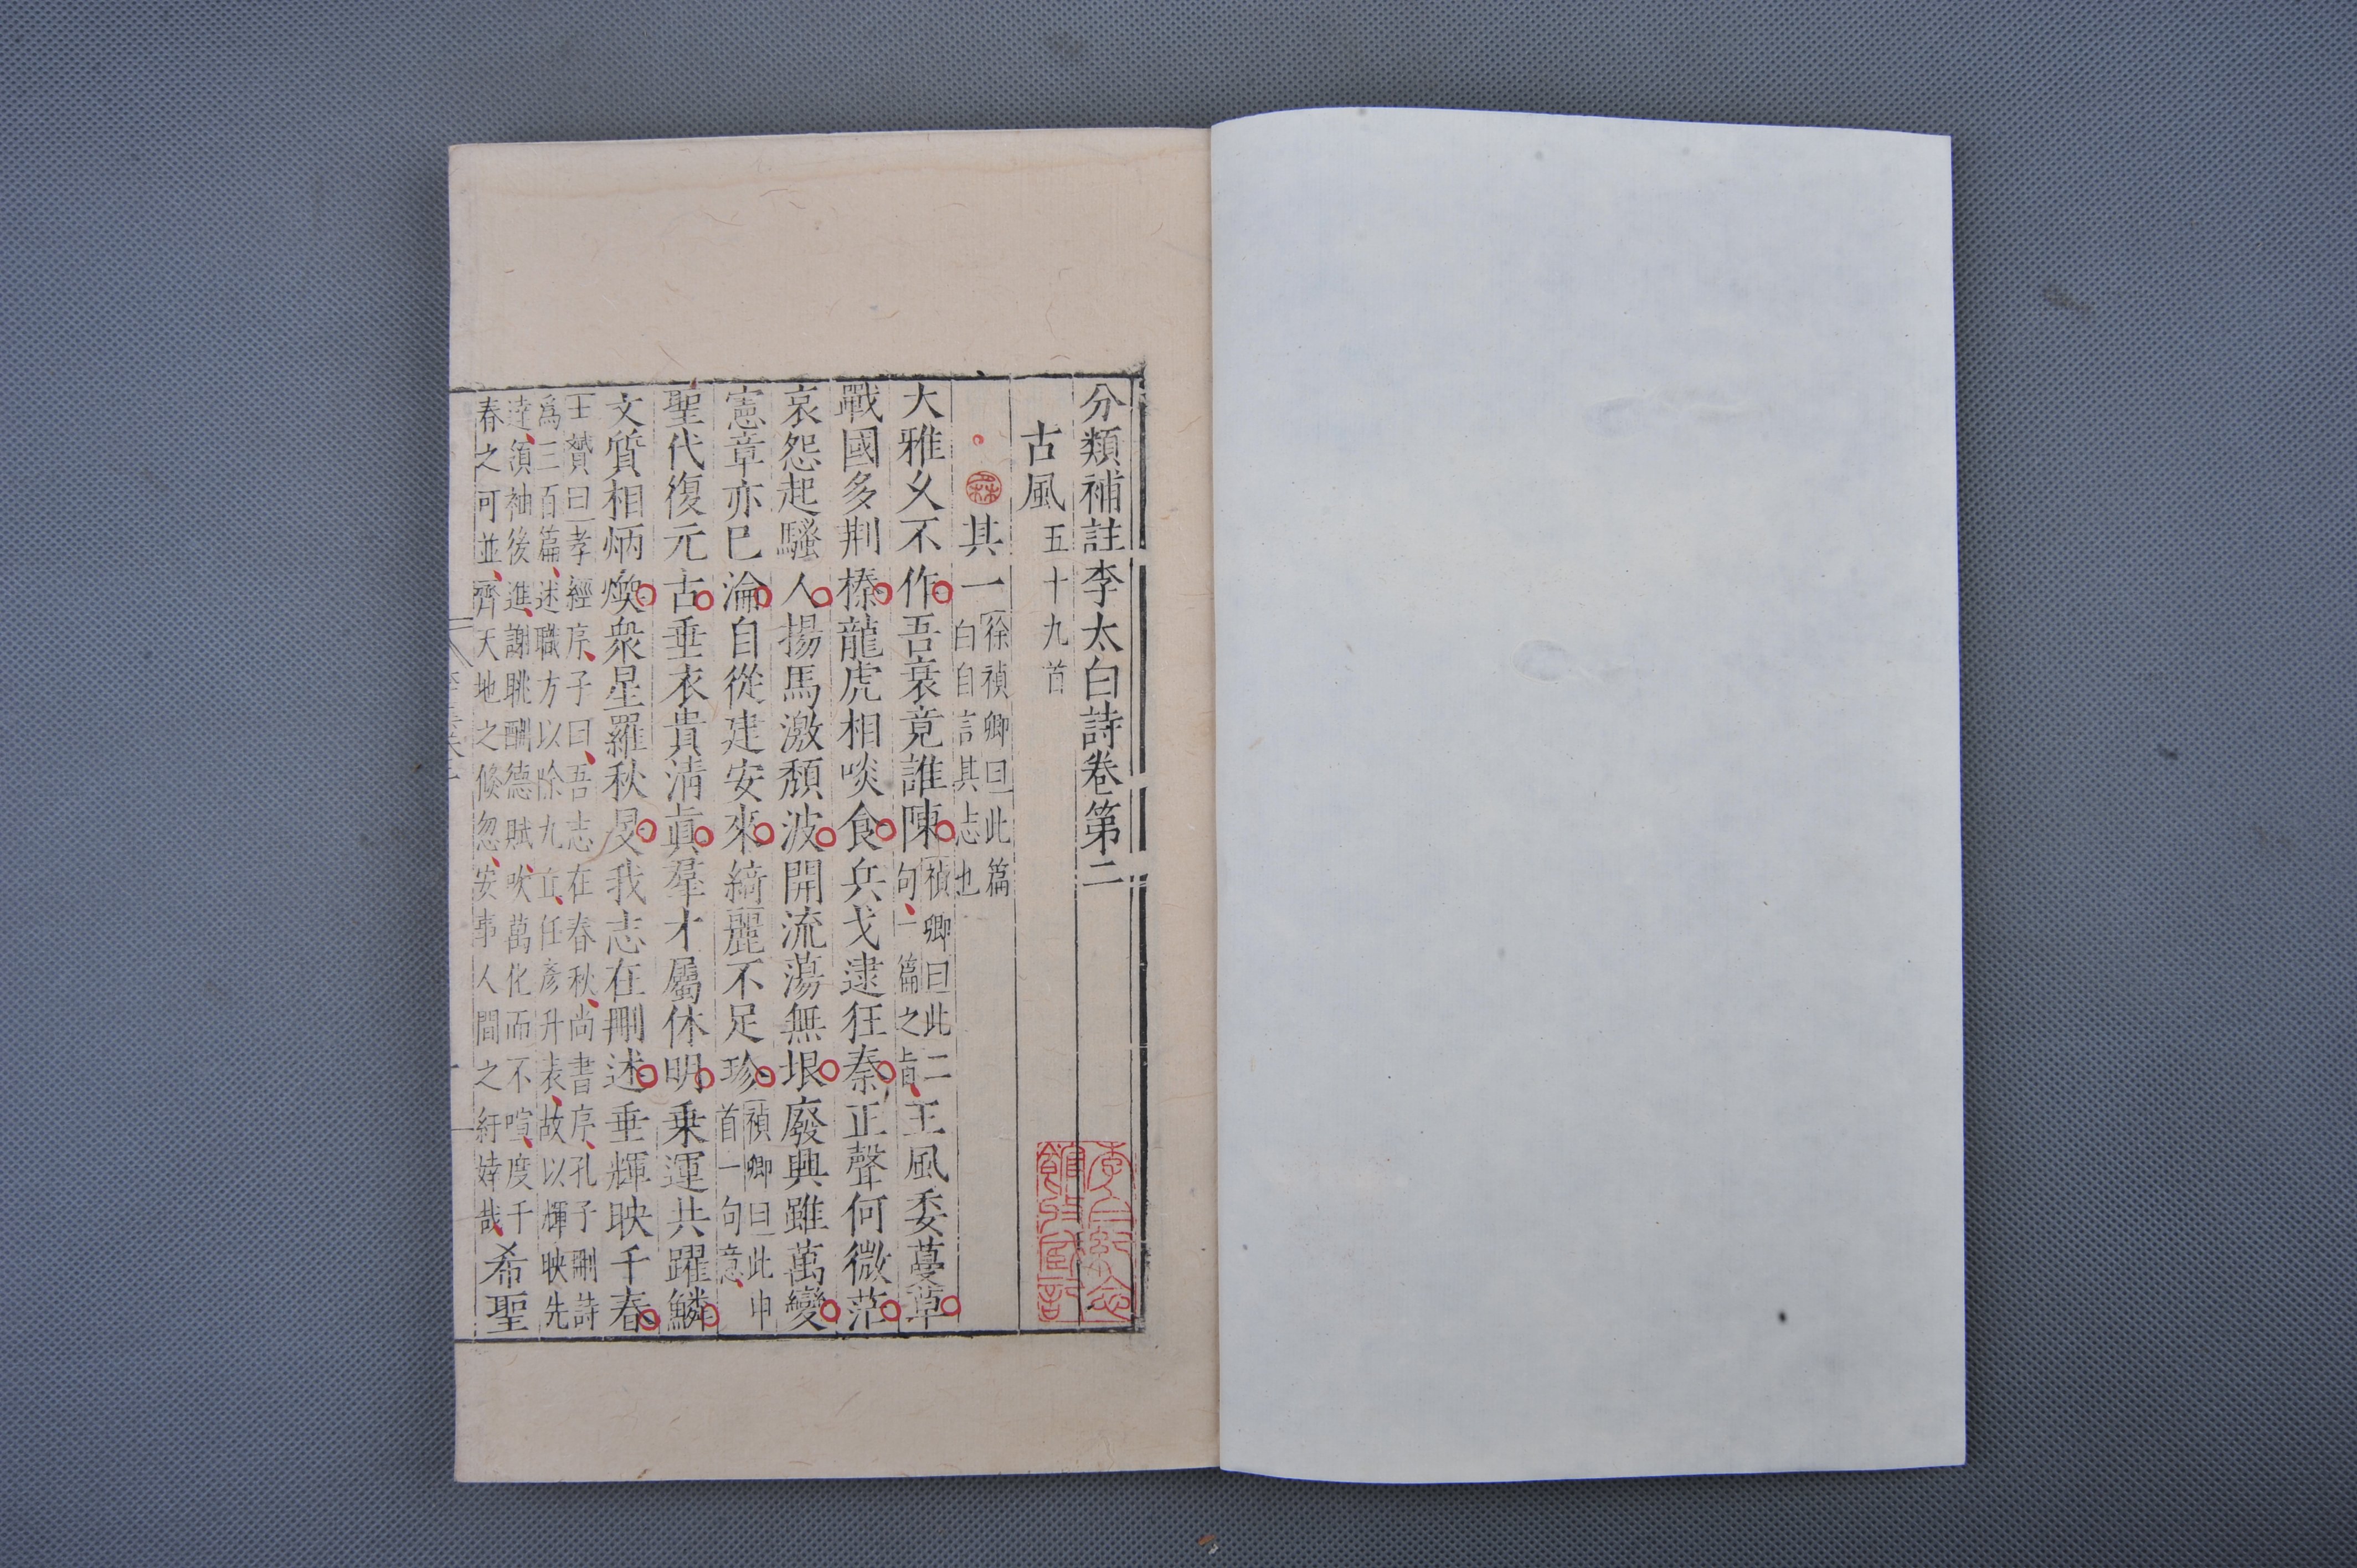 分類補註李太白詩卷第二
古風五十九首
其一徐禎卿曰此篇
白自言其志也
大雅久不作吾衰竟誰陳禎卿曰此二
句一篇之旨王風委蔓草
戰國多荆榛龍虎相啖食兵戈逮狂秦正聲何微茫
哀怨起騷人揚馬激頹波開流蕩無垠廢興雖萬變
憲章亦已淪自從建安來綺麗不足珍禎卿曰此申
首一句意
聖代復元古垂衣貴清眞羣才屬休明乗運共躍鱗
文質相炳煥衆星羅秋旻我志在刪述垂輝映千春
士贇曰孝經序子曰吾志在春秋尚書序孔子刪詩
爲三百篇述職方以除九丘任彥升表故以輝映先
達領袖後進謝朓酬德賦吹萬化而不喧度千
春之可並齊天地之倏忽安事人間之紆婞哉希聖
李白紀念
館收臧記